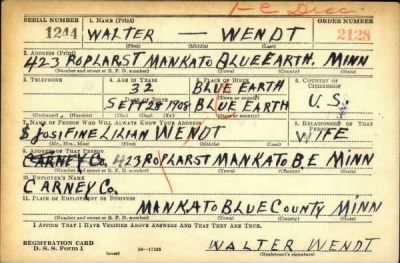 1-C Drec.
SERIAL NUMBER 1. NAME (Print) ORDER NUMBER
1244 WALTER — WENDT 2128
(First) (Middle) (Last)
2. ADDRESS (Print)
423 POPLARST MANKATO BLUE EARTH. MINN
(Number and street or R. F. D. number) (Town) (County) (State)
3. TELEPHONE 4. AGE IN YEARS 5. PLACE OF BIRTH 6. COUNTRY OF CITIZENSHIP
32 BLUE EARTH
(Town or county)
DATE OF BIRTH U.S.
SEPT 28 1908 BLUE EARTH
(Exchange) (Number) (Mo.) (Day) (Yr.) (State or country)
7. NAME OF PERSON WHO WILL ALWAYS KNOW YOUR ADDRESS 8. RELATIONSHIP OF THAT PERSON
JOSIFINE LILIAN WENDT WIFE
(Mr., Mrs., Miss) (First) (Middle) (Last)
9. ADDRESS OF THAT PERSON
CARNEY Co. 423 POPLARST MANKATO B.E MINN
(Number and street or R. F. D. number) (Town) (County) (State)
10. EMPLOYER'S NAME
CARNEY Co.
11. PLACE OF EMPLOYMENT OR BUSINESS
MANKATO BLUE COUNTY MINN
(Number and street or R. F. D. number) (Town) (County) (State)
I AFFIRM THAT I HAVE VERIFIED ABOVE ANSWERS AND THAT THEY ARE TRUE.
REGISTRATION CARD
D. S. S. Form 1 16-17105 WALTER WENDT
(Registrant's signature)